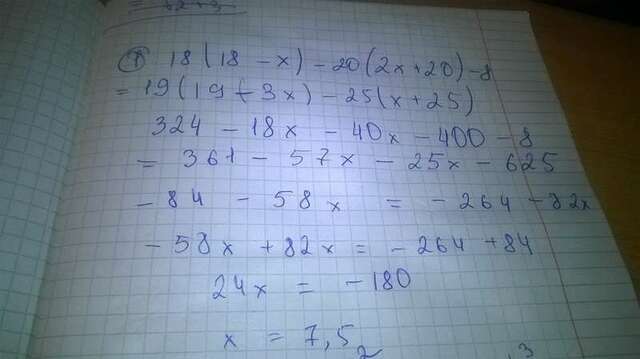 ① 18(18 - x) - 20(2x + 20) - 8
= 19(19 - 3x) - 25(x + 25)
324 - 18x - 40x - 400 - 8
= 361 - 57x - 25x - 625
- 84 - 58x = - 264 - 82x
- 58x + 82x = - 264 + 84
24x = - 180
x = 7,5